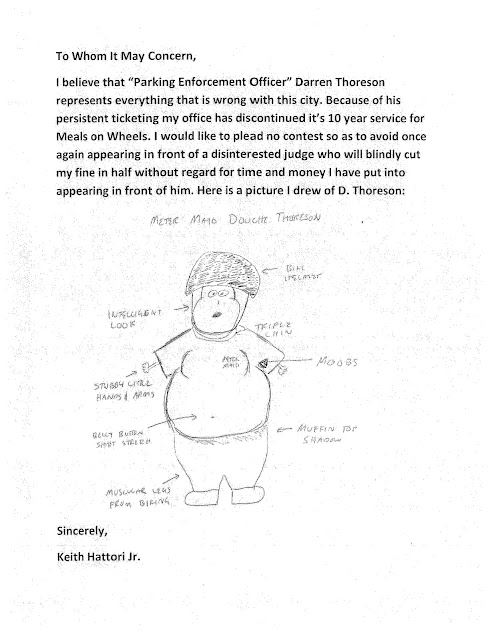 To Whom It May Concern,
I believe that “Parking Enforcement Officer” Darren Thoreson
represents everything that is wrong with this city. Because of his
persistent ticketing my office has discontinued it’s 10 year service for
Meals on Wheels. I would like to plead no contest so as to avoid once
again appearing in front of a disinterested judge who will blindly cut
my fine in half without regard for time and money I have put into
appearing in front of him. Here is a picture I drew of D. Thoreson:
METER MAID DOUCHE THORESON
BIKE
HELMET
INTELLIGENT
LOOK
TRIPLE
CHIN
METER
MAID
MOOBS
STUBBY LITTLE
HANDS & ARMS
BELLY BUTTON
SHIRT STRETCH
MUFFIN TOP
SHADOW
MUSCULAR LEGS
FROM BIKING
Sincerely,
Keith Hattori Jr.